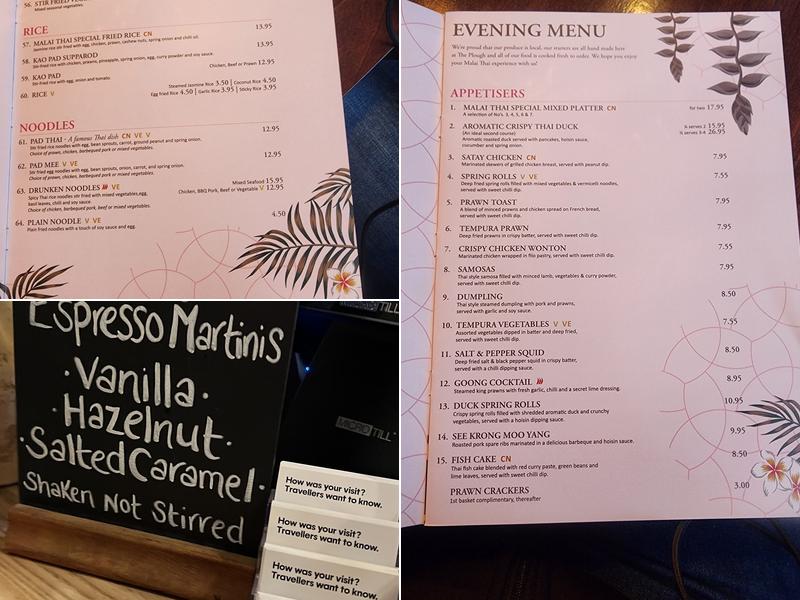 56. STIR FRIED
Mixed seasonal vegetables.
RICE
57. MALAI THAI SPECIAL FRIED RICE CN 13.95
Jasmine rice stir fried with egg, chicken, prawn, cashew nuts, spring onion and chilli oil.
58. KAO PAD SUPPAROD 13.95
Stir-fried rice with chicken, prawns, pineapple, spring onion, egg, curry powder and soy sauce.
59. KAO PAD Chicken, Beef or Prawn 12.95
Stir-fried rice with egg, onion and tomato.
60. RICE V Steamed Jasmine Rice 3.50 | Coconut Rice 4.50
Egg fried Rice 4.50 | Garlic Rice 3.95 | Sticky Rice 3.95
NOODLES
61. PAD THAI - A famous Thai dish CN VE V 12.95
Stir fried rice noodles with egg, bean sprouts, carrot, ground peanut and spring onion.
Choice of prawn, chicken, barbequed pork or mixed vegetables.
62. PAD MEE V VE 12.95
Stir fried egg noodles with egg, bean sprouts, onion, carrot, and spring onion.
Choice of prawn, chicken, barbequed pork or mixed vegetables.
63. DRUNKEN NOODLES VE Mixed Seafood 15.95
Spicy Thai rice noodles stir fried with mixed vegetables,egg, Chicken, BBQ Pork, Beef or Vegetable V 12.95
basil leaves, chilli and soy sauce.
Choice of chicken, barbequed pork, beef or mixed vegetables.
64. PLAIN NOODLE V VE 4.50
Plain fried noodles with a touch of soy sauce and egg.
Espresso Martinis
·Vanilla·
·Hazelnut·
·Salted Caramel·
Shaken Not Stirred
MICROTILL
How was your visit?
Travellers want to know.
How was your visit?
Travellers want to know.
How was your visit?
Travellers want to know.
EVENING MENU
We're proud that our produce is local, our starters are all hand made here
at The Plough and all of our food is cooked fresh to order. We hope you enjoy
your Malai Thai experience with us!
APPETISERS
1. MALAI THAI SPECIAL MIXED PLATTER CN for two 17.95
A selection of No's. 3, 4, 5, 6 & 7.
2. AROMATIC CRISPY THAI DUCK ¼ serves 2 15.95
(An ideal second course) ½ serves 3-4 26.95
Aromatic roasted duck served with pancakes, hoisin sauce,
cucumber and spring onion.
3. SATAY CHICKEN CN 7.95
Marinated skewers of grilled chicken breast, served with peanut dip.
4. SPRING ROLLS V VE 7.55
Deep fried spring rolls filled with mixed vegetables & vermicelli noodles,
served with sweet chilli dip.
5. PRAWN TOAST 7.95
A blend of minced prawns and chicken spread on French bread,
served with sweet chilli dip.
6. TEMPURA PRAWN 7.95
Deep fried prawns in crispy batter, served with sweet chilli dip.
7. CRISPY CHICKEN WONTON 7.55
Marinated chicken wrapped in filo pastry, served with sweet chilli dip.
8. SAMOSAS 7.95
Thai style samosa filled with minced lamb, vegetables & curry powder,
served with sweet chilli dip.
9. DUMPLING 8.50
Thai style steamed dumpling with pork and prawns,
served with garlic and soy sauce.
10. TEMPURA VEGETABLES V VE 7.55
Assorted vegetables dipped in batter and deep fried,
served with sweet chilli dip.
11. SALT & PEPPER SQUID 8.50
Deep fried salt & black pepper squid in crispy batter,
served with a chilli dipping sauce.
12. GOONG COCKTAIL 8.95
Steamed king prawns with fresh garlic, chilli and a secret lime dressing.
13. DUCK SPRING ROLLS 10.95
Crispy spring rolls filled with shredded aromatic duck and crunchy
vegetables, served with a hoisin dipping sauce.
14. SEE KRONG MOO YANG 9.95
Roasted pork spare ribs marinated in a delicious barbeque and hoisin sauce.
15. FISH CAKE CN 8.50
Thai fish cake blended with red curry paste, green beans and
lime leaves, served with sweet chilli dip.
PRAWN CRACKERS 3.00
1st basket complimentary, thereafter